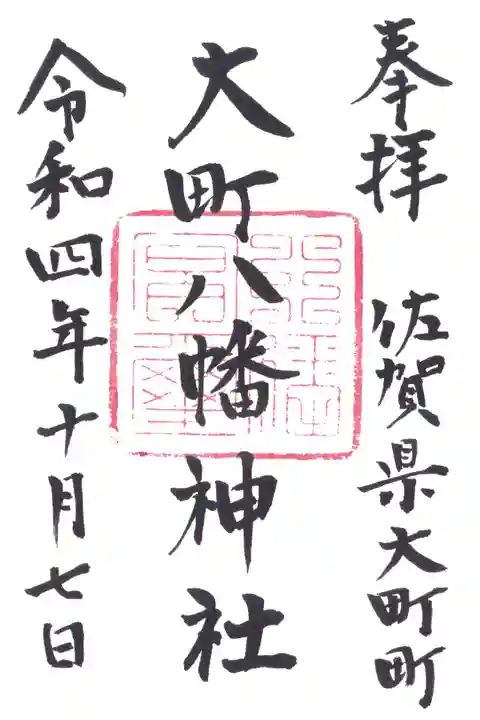 奉拝 佐賀県大町町
大町八幡神社
令和四年十月七日